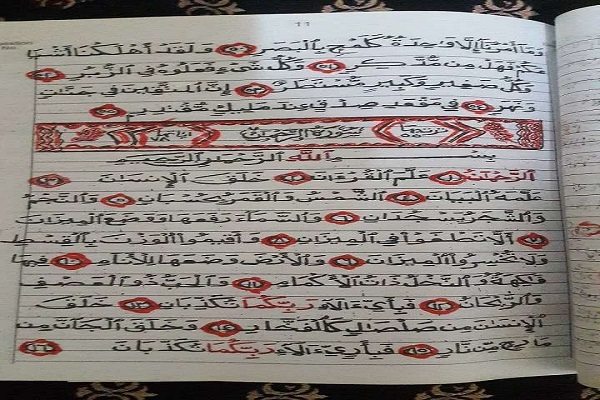 11
وَمَا أَمْرُنَا إِلَّا وَاحِدَةٌ كَلَمْحٍ بِالْبَصَرِ ٥٠ وَلَقَدْ أَهْلَكْنَا أَشْيَا
عَكُمْ فَهَلْ مِن مُّدَّكِرٍ ٥١ وَكُلُّ شَيْءٍ فَعَلُوهُ فِي الزُّبُرِ ٥٢
وَكُلُّ صَغِيرٍ وَكَبِيرٍ مُّسْتَطَرٌ ٥٣ إِنَّ الْمُتَّقِينَ فِي جَنَّاتٍ
وَنَهَرٍ ٥٤ فِي مَقْعَدِ صِدْقٍ عِندَ مَلِيكٍ مُّقْتَدِرٍ ٥٥
سُورَةُ الرَّحْمَٰنِ
بِسْمِ اللَّهِ الرَّحْمَٰنِ الرَّحِيمِ
الرَّحْمَٰنُ ١ عَلَّمَ الْقُرْءَانَ ٢ خَلَقَ الْإِنسَانَ ٣
عَلَّمَهُ الْبَيَانَ ٤ الشَّمْسُ وَالْقَمَرُ بِحُسْبَانٍ ٥ وَالنَّجْمُ
وَالشَّجَرُ يَسْجُدَانِ ٦ وَالسَّمَاءَ رَفَعَهَا وَوَضَعَ الْمِيزَانَ
٧ أَلَّا تَطْغَوْا فِي الْمِيزَانِ ٨ وَأَقِيمُوا الْوَزْنَ بِالْقِسْطِ
وَلَا تُخْسِرُوا الْمِيزَانَ ٩ وَالْأَرْضَ وَضَعَهَا لِلْأَنَامِ ١٠ فِيهَا
فَاكِهَةٌ وَالنَّخْلُ ذَاتُ الْأَكْمَامِ ١١ وَالْحَبُّ ذُو الْعَصْفِ
وَالرَّيْحَانُ ١٢ فَبِأَيِّ ءَالَاءِ رَبِّكُمَا تُكَذِّبَانِ ١٣ خَلَقَ
الْإِنسَانَ مِن صَلْصَالٍ كَالْفَخَّارِ ١٤ وَخَلَقَ الْجَانَّ مِن
مَّارِجٍ مِّن نَّارٍ ١٥ فَبِأَيِّ ءَالَاءِ رَبِّكُمَا تُكَذِّبَانِ ١٦